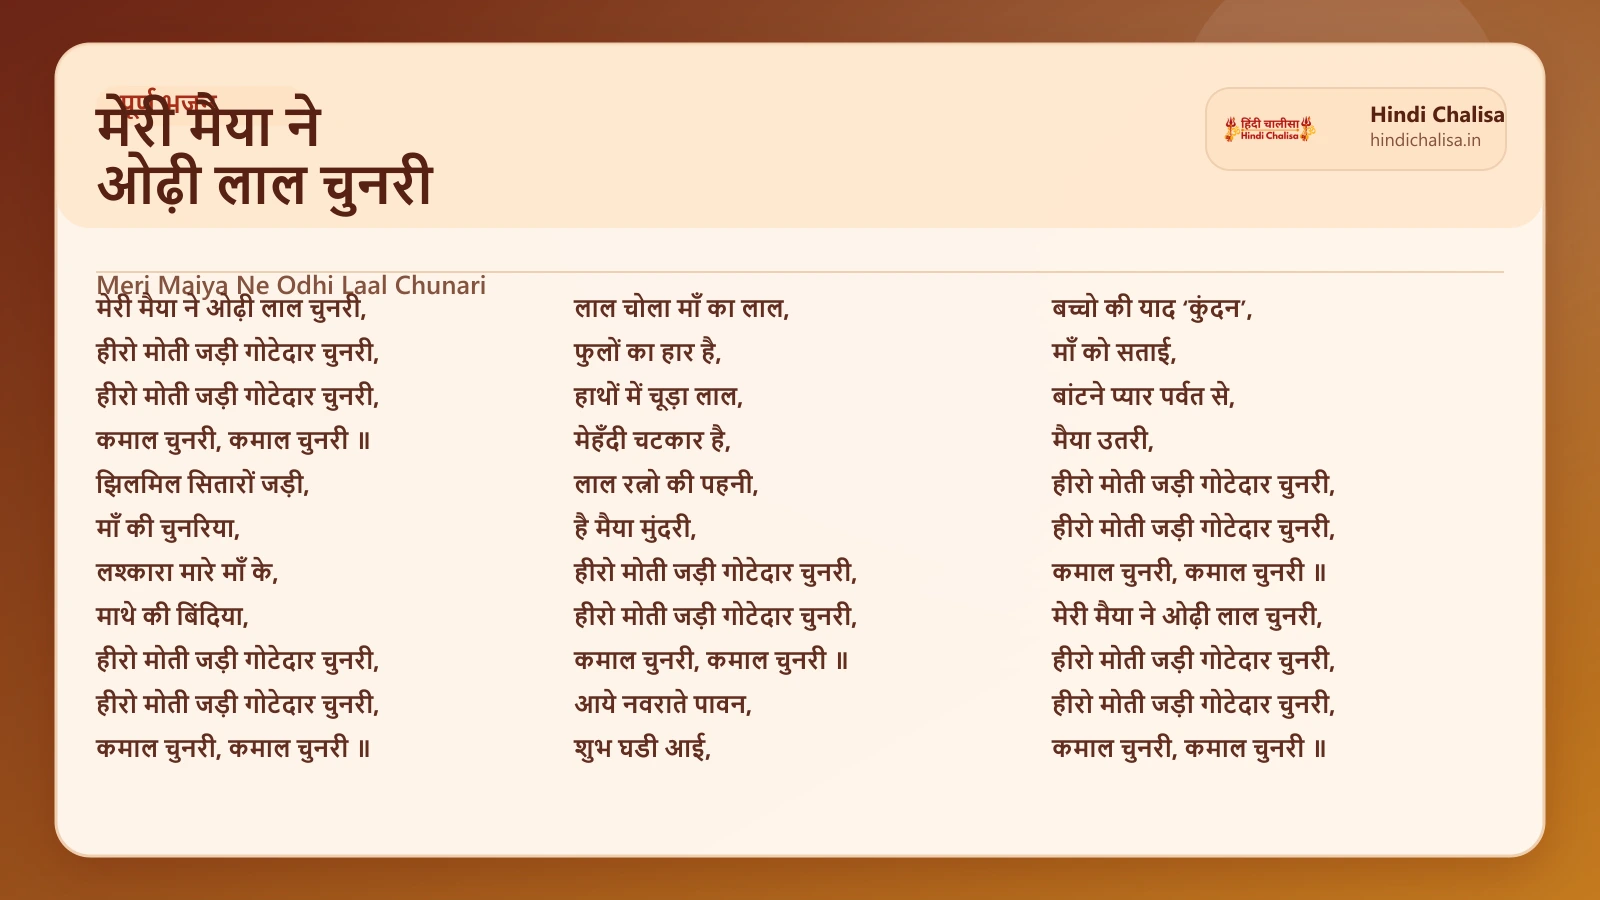 पूर्ण भजन
मेरी मैया ने
ओढ़ी लाल चुनरी
हिंदी चालीसा
Hindi Chalisa
Hindi Chalisa
hindichalisa.in
Meri Maiya Ne Odhi Laal Chunari
मेरी मैया ने ओढ़ी लाल चुनरी,
हीरो मोती जड़ी गोटेदार चुनरी,
हीरो मोती जड़ी गोटेदार चुनरी,
कमाल चुनरी, कमाल चुनरी ॥
झिलमिल सितारों जड़ी,
माँ की चुनरिया,
लश्कारा मारे माँ के,
माथे की बिंदिया,
हीरो मोती जड़ी गोटेदार चुनरी,
हीरो मोती जड़ी गोटेदार चुनरी,
कमाल चुनरी, कमाल चुनरी ॥
लाल चोला माँ का लाल,
फुलों का हार है,
हाथों में चूड़ा लाल,
मेहँदी चटकार है,
लाल रत्नो की पहनी,
है मैया मुंदरी,
हीरो मोती जड़ी गोटेदार चुनरी,
हीरो मोती जड़ी गोटेदार चुनरी,
कमाल चुनरी, कमाल चुनरी ॥
आये नवराते पावन,
शुभ घडी आई,
बच्चो की याद ‘कुंदन’,
माँ को सताई,
बांटने प्यार पर्वत से,
मैया उतरी,
हीरो मोती जड़ी गोटेदार चुनरी,
हीरो मोती जड़ी गोटेदार चुनरी,
कमाल चुनरी, कमाल चुनरी ॥
मेरी मैया ने ओढ़ी लाल चुनरी,
हीरो मोती जड़ी गोटेदार चुनरी,
हीरो मोती जड़ी गोटेदार चुनरी,
कमाल चुनरी, कमाल चुनरी ॥